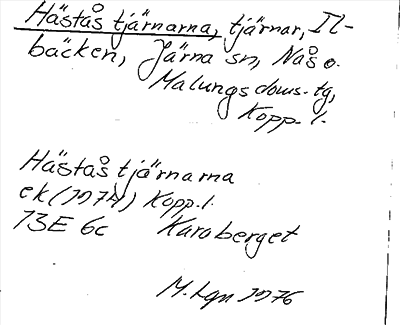 Hästås tjärnarna, tjärnar, Il-
bäcken, Järna sn, Nås o.
Malungs doms.tg,
Kopp. l.
Hästås tjärnarna
ek (1974) Kopp. l.
13E 6c Karaberget
M. Lgn 1976